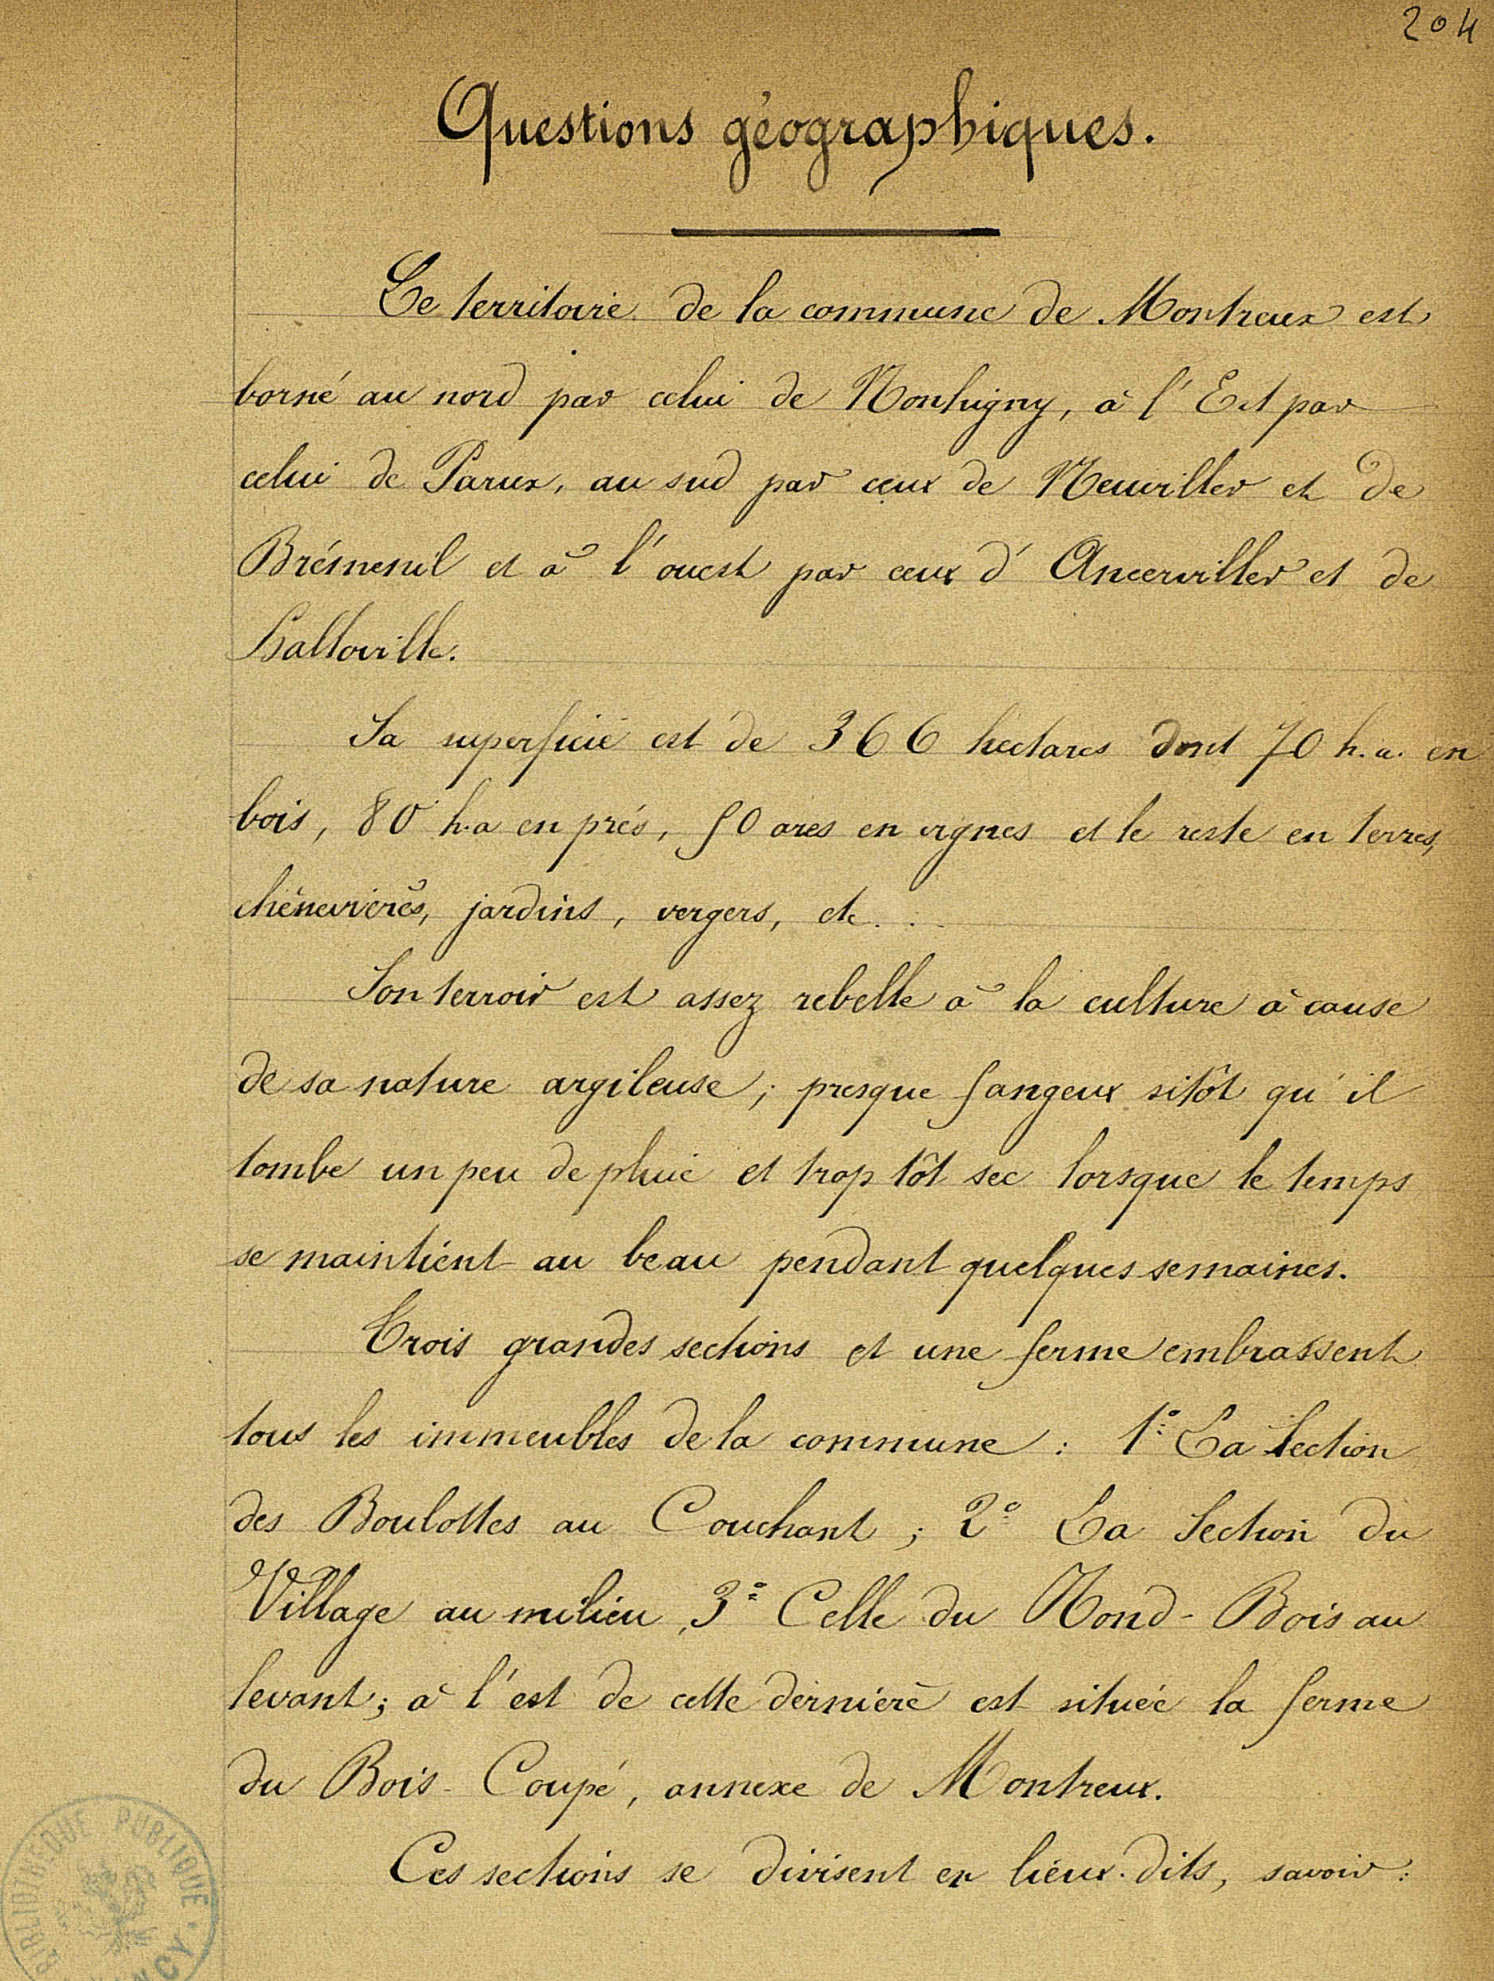 204
Questions géographiques.
Le territoire de la commune de Montreux est
borné au nord par celui de Montigny, à l'Est par
celui de Parux, au sud par ceux de Neuviller et de
Brémenil et à l'ouest par ceux d'Ancerviller et de
Halloville.
Sa superficie est de 366 hectares dont 70 h.a. en
bois, 80 h.a en prés, 50 ares en vignes et le reste en terres,
chènevières, jardins, vergers, etc...
Son terroir est assez rebelle à la culture à cause
de sa nature argileuse ; presque fangeux sitôt qu'il
tombe un peu de pluie et trop tôt sec lorsque le temps
se maintient au beau pendant quelques semaines.
Trois grandes sections et une ferme embrassent
tous les immeubles de la commune : 1° La Section
des Boulottes au Couchant ; 2° La Section du
Village au milieu, 3° Celle du Rond-Bois au
levant ; à l'est de cette dernière est située la ferme
du Bois-Coupé, annexe de Montreux.
Ces sections se divisent en lieux-dits, savoir :
BIBLIOTHEQUE PUBLIQUE